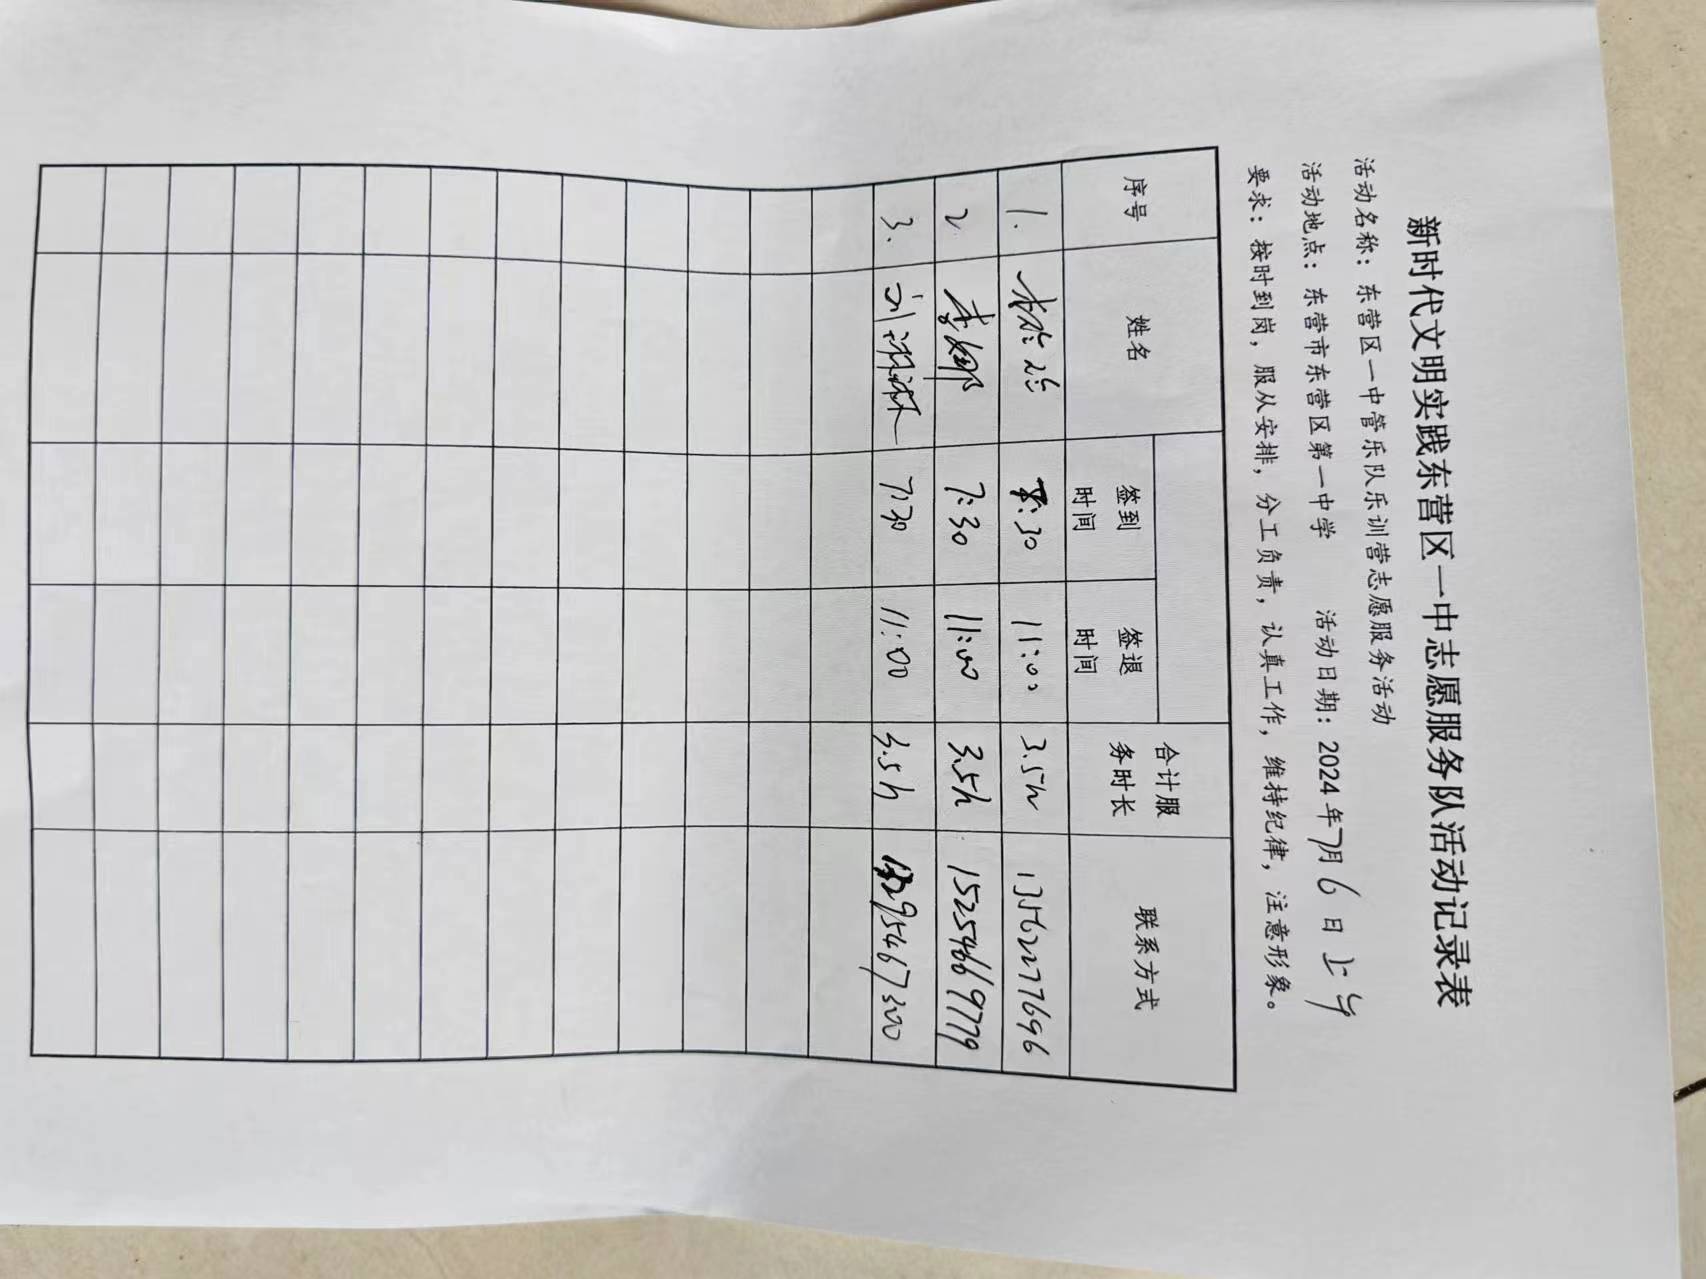 新时代文明实践东营区一中志愿服务队活动记录表
活动名称：东营区一中管乐队乐训营志愿服务活动
活动地点：东营市东营区第一中学 活动日期：2024年7月6日上午
要求：按时到岗，服从安排，分工负责，认真工作，维持纪律，注意形象。
序号 姓名 签到时间 签退时间 合计服务时长 联系方式
1. 7:30 11:00 3.5h 13562277696
2 李娜 7:30 11:00 3.5h
3. 刘淋淋 7:30 11:00 3.5h